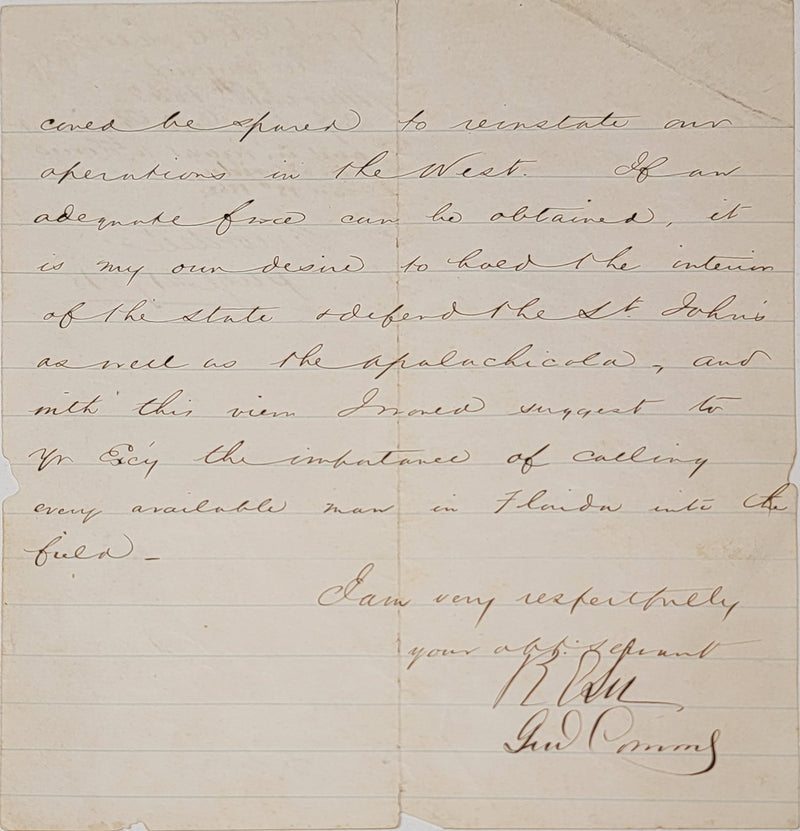 could be spared to reinstate our
operations in the West. If an
adequate force can be obtained, it
is my own desire to hold the interior
of the state & defend the St. John's
as well as the Apalachicola, and
with this view I would suggest to
Yr Exc'y the importance of calling
every available man in Florida into the
field —
I am very respectfully
your obt. servant
R E Lee
Genl Commg